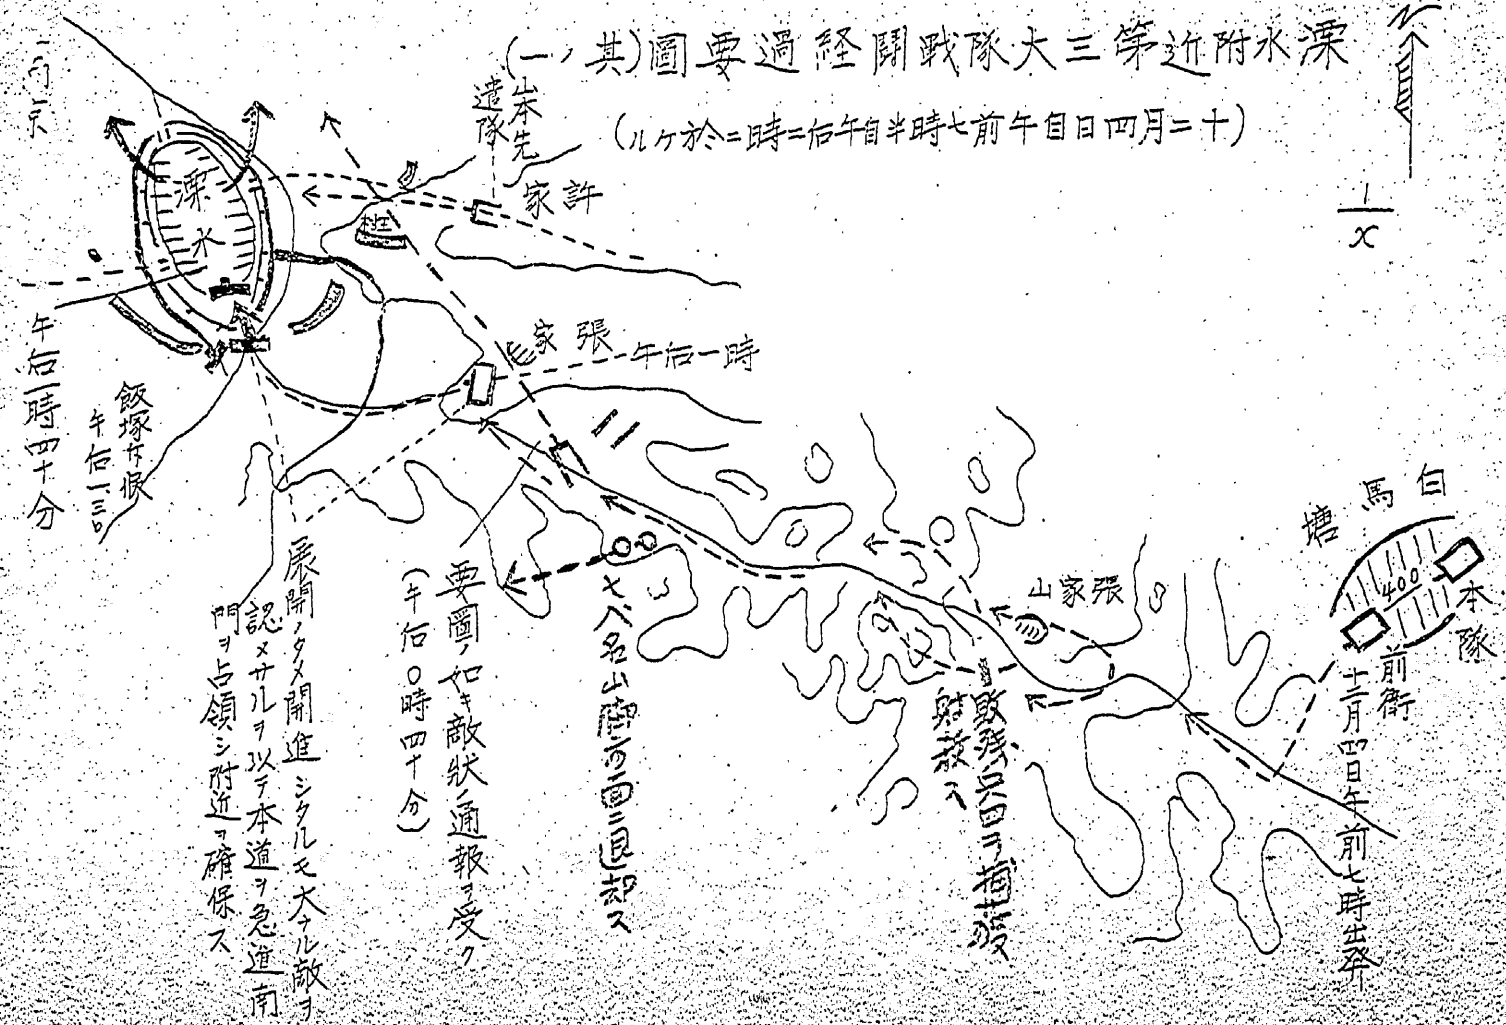 溧水附近第三大隊戰鬪経過要圖(其ノ一)
(十二月四日自午前七時半自午后二時ニ於ケル)
N
1/x
南京
溧水
山本先
遣隊
許家
桃
張家
午后一時
午后一時四十分
飯塚斥候
午后一、三〇
展開ノタメ開進シタルモ大ナル敵ヲ
認メサルヲ以テ本道ヲ急進南
門ヲ占領シ附近ヲ確保ス
要圖ノ如キ敵狀ノ通報ヲ受ク
(午后〇時四十分)
七八名山脚方面ニ退却ス
張家山
敗殘兵四ヲ捕獲
射殺ス
白馬塘
400
本隊
前衛
十二月四日午前七時出発